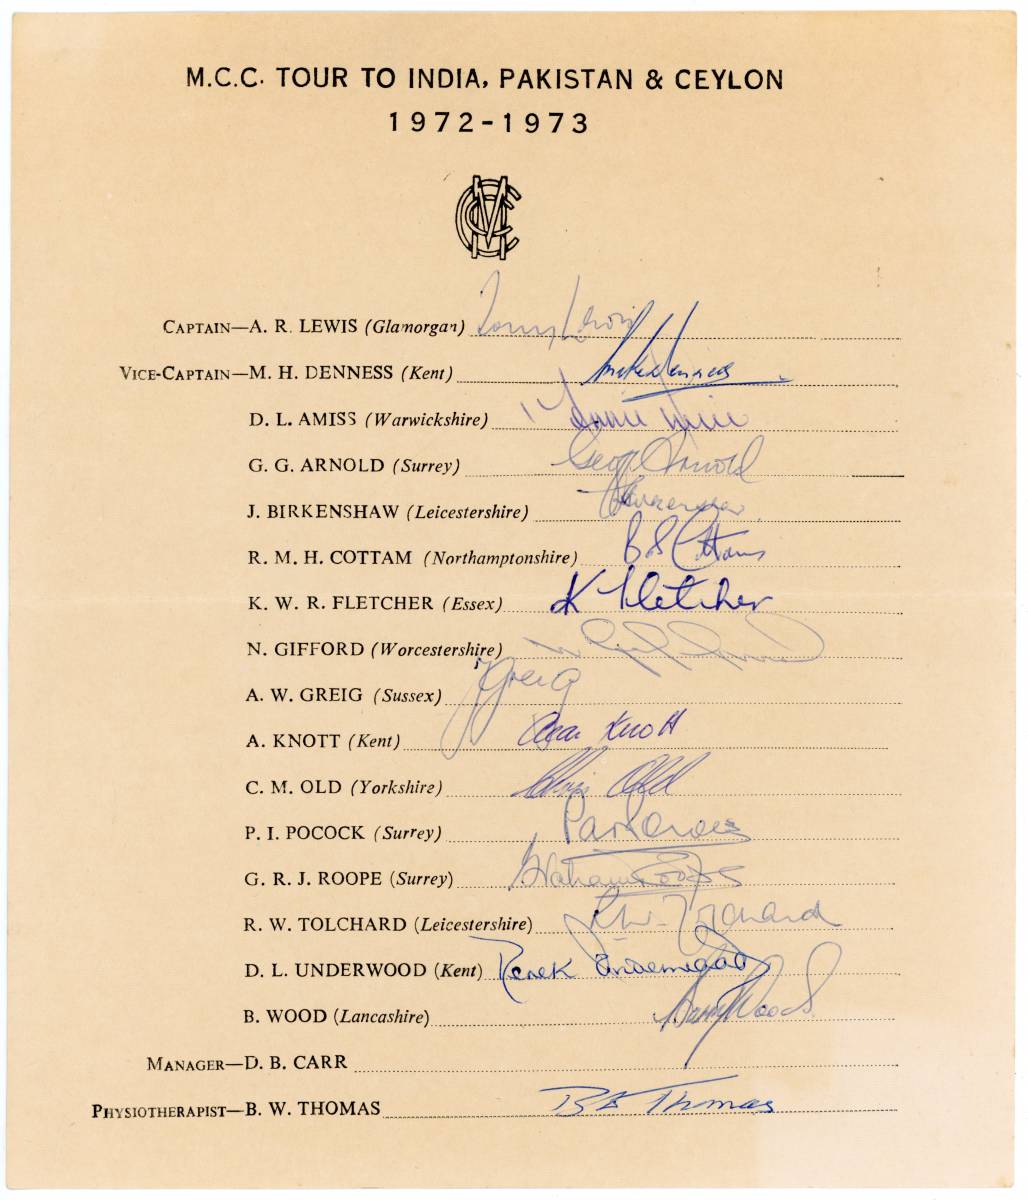 M.C.C. TOUR TO INDIA, PAKISTAN & CEYLON
1972-1973
MCC
CAPTAIN—A. R. LEWIS (Glamorgan) Tony Lewis
VICE-CAPTAIN—M. H. DENNESS (Kent) Mike Denness
D. L. AMISS (Warwickshire)
G. G. ARNOLD (Surrey) Geoff Arnold
J. BIRKENSHAW (Leicestershire) J Birkenshaw
R. M. H. COTTAM (Northamptonshire) Cottam
K. W. R. FLETCHER (Essex) K Fletcher
N. GIFFORD (Worcestershire) N Gifford
A. W. GREIG (Sussex) Greig
A. KNOTT (Kent) Alan Knott
C. M. OLD (Yorkshire) Chris Old
P. I. POCOCK (Surrey) Pat Pocock
G. R. J. ROOPE (Surrey) Graham Roope
R. W. TOLCHARD (Leicestershire) R.W. Tolchard
D. L. UNDERWOOD (Kent) Derek Underwood
B. WOOD (Lancashire) Barry Wood
MANAGER—D. B. CARR
PHYSIOTHERAPIST—B. W. THOMAS Thomas